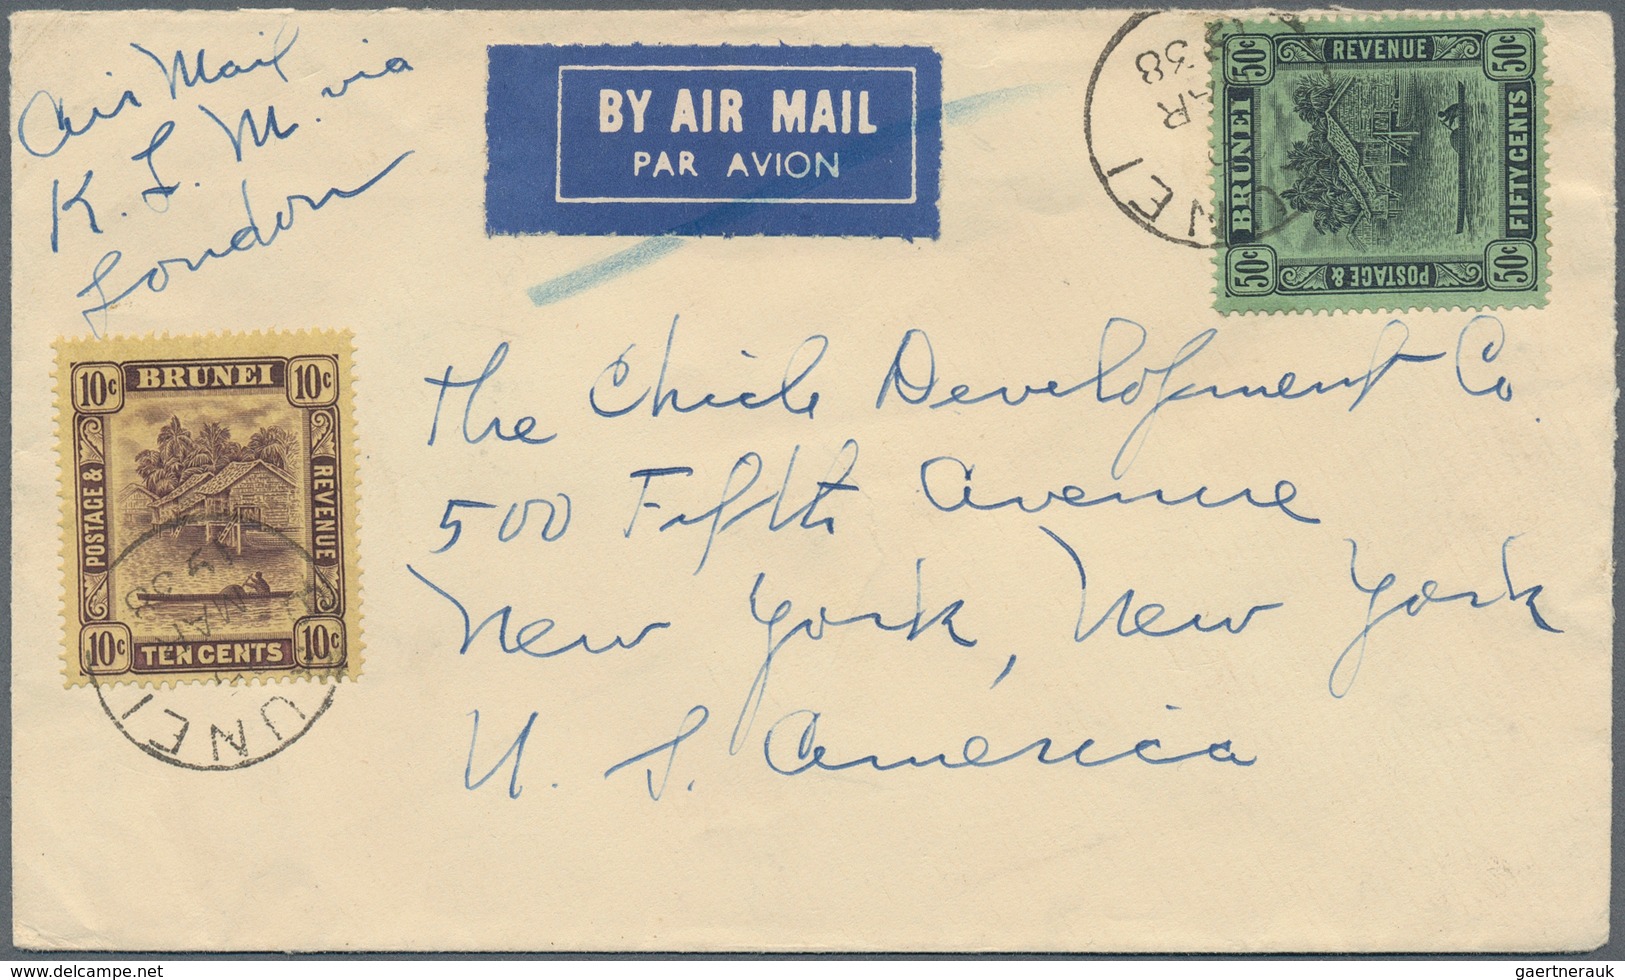 Air Mail
K. L. M. via
London
BY AIR MAIL
PAR AVION
50c REVENUE 50c
BRUNEI
FIFTY CENTS
50c POSTAGE & 50c
NEI
AR
38
The Chicle Development Co.
500 Fifth Avenue
New York, New York
U. S. America
10c BRUNEI 10c
POSTAGE &
REVENUE
10c TEN CENTS 10c
MAR
38
UNEI
delcampe.net
gaertnerauk